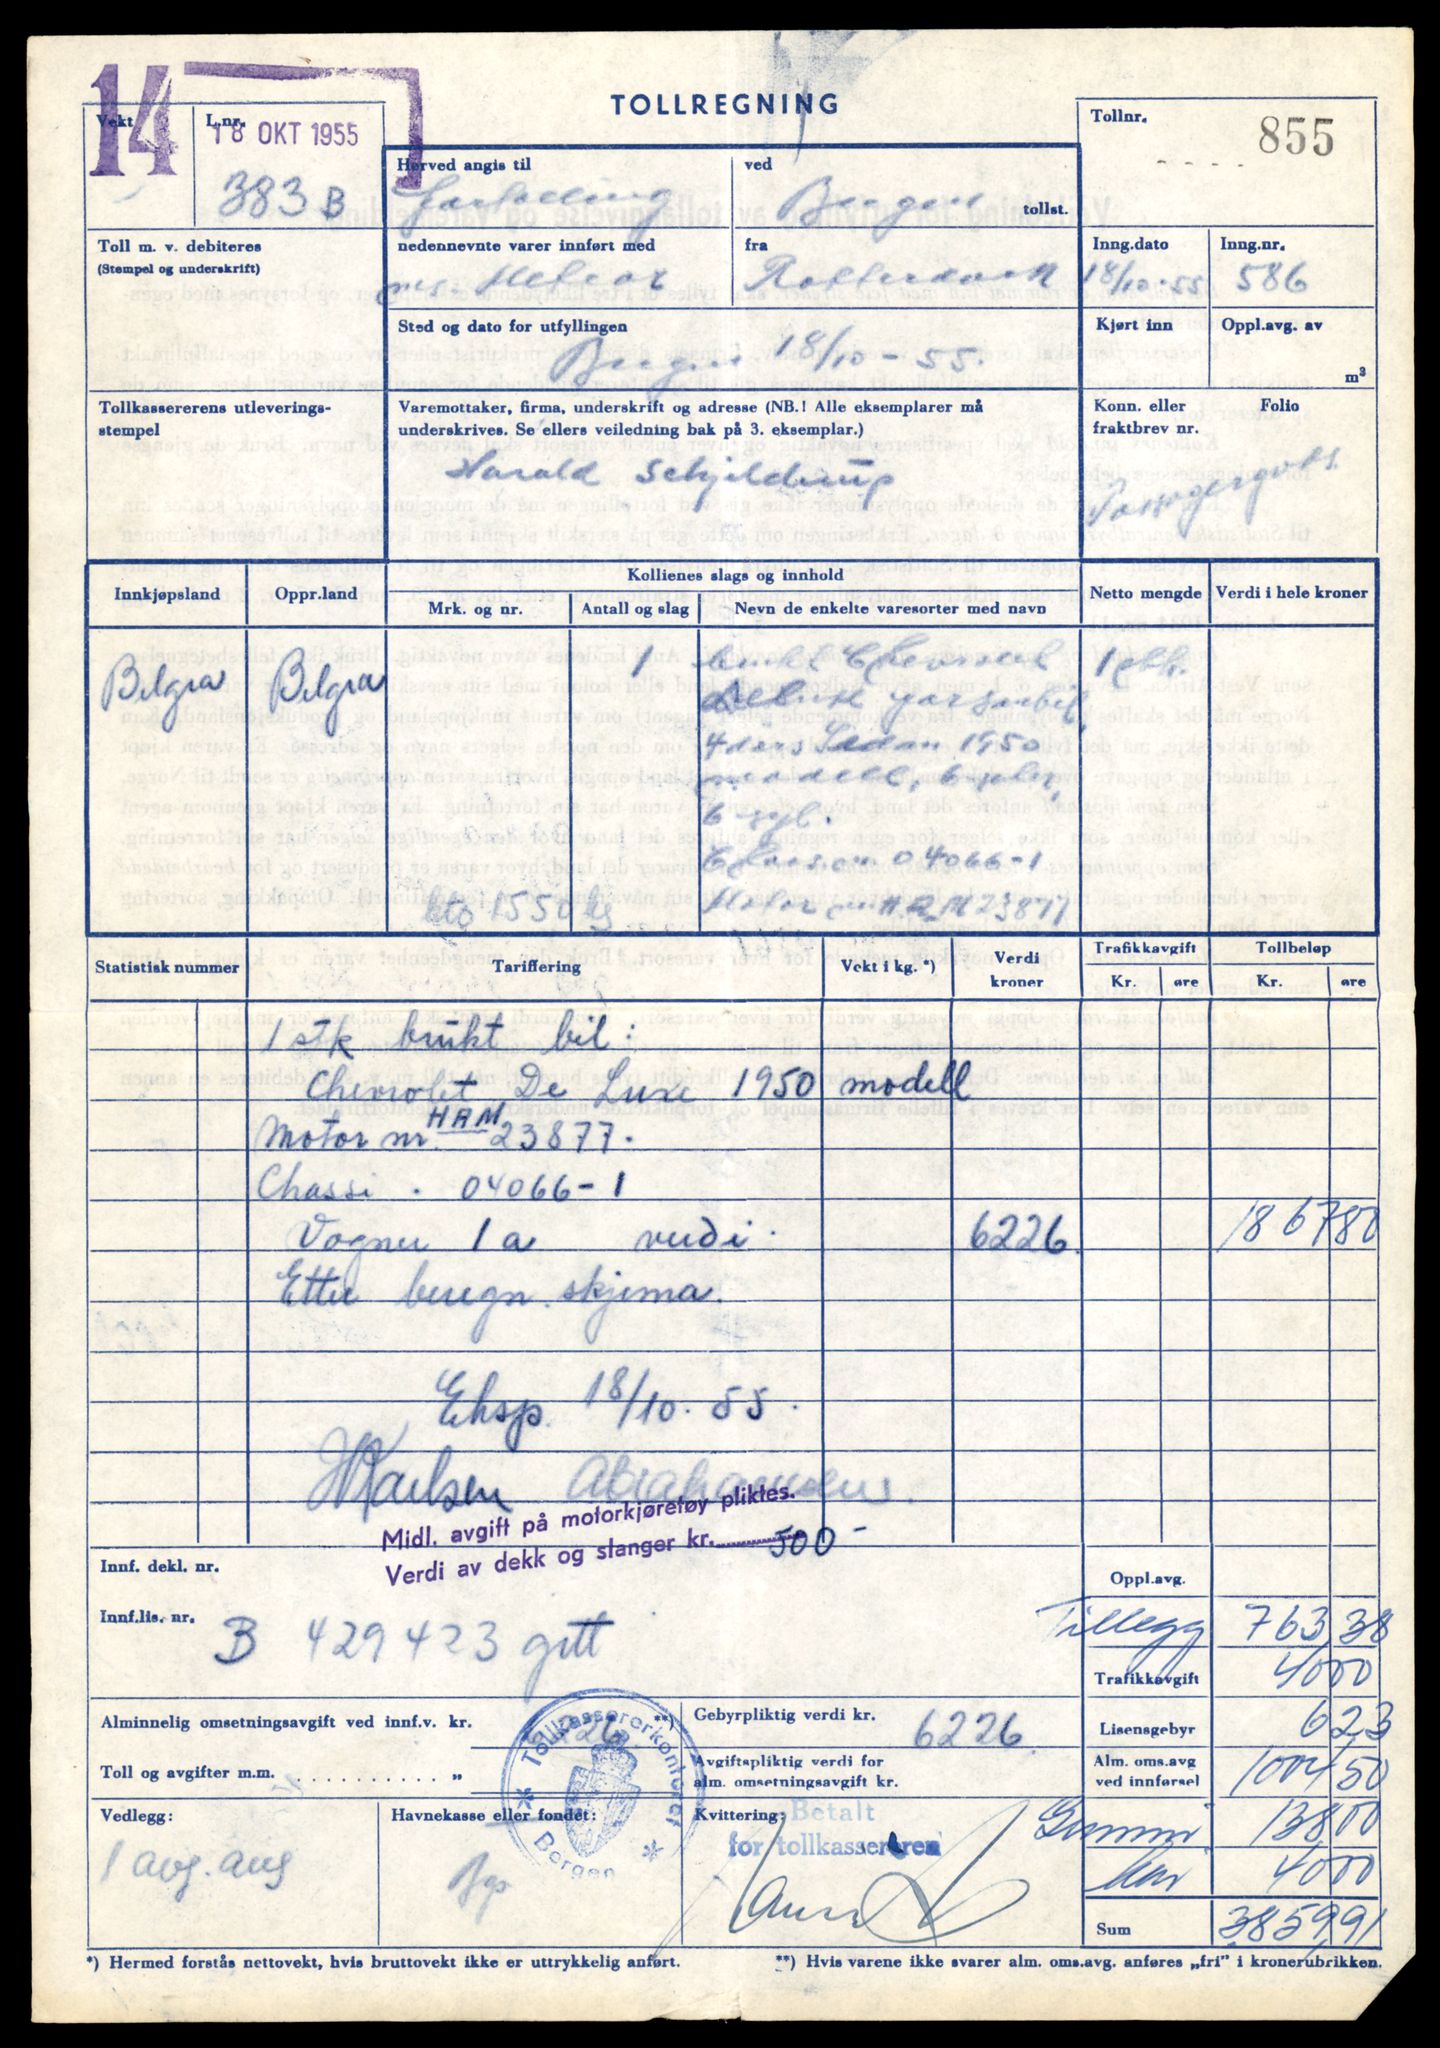 TOLLREGNING
14
Vekt
L.nr.
18 OKT 1955
383 B
Tollnr.
855
Herved angis til
Fortolling
ved
Bergen tollst.
Toll m. v. debiteres
(Stempel og underskrift)
nedennevnte varer innført med
m/s.
fra
Rotterdam
Inng.dato
18/10-55
Inng.nr.
586
Sted og dato for utfyllingen
Bergen 18/10-55.
Kjørt inn
Oppl.avg. av
m³
Tollkassererens utleverings-
stempel
Varemottaker, firma, underskrift og adresse (NB.! Alle eksemplarer må
underskrives. Se ellers veiledning bak på 3. eksemplar.)
Harald Schjelderup
Konn. eller
fraktbrev nr.
Folio
Passasjergods
Innkjøpsland
Oppr.land
Kollienes slags og innhold
Mrk. og nr.
Antall og slag
Nevn de enkelte varesorter med navn
Netto mengde
Verdi i hele kroner
Belgia Belgia 1 brukt Chevrolet 1 stk.
De Luxe personbil,
4 dørs Sedan 1950
modell, 6
6 syl.
Chassis nr 04066-1
bto 1550 kg Motor nr HAM 23877
Statistisk nummer
Tariffering
Vekt i kg. *)
Verdi
kroner
Trafikkavgift
Kr.
øre
Tollbeløp
Kr.
øre
1 stk brukt bil:
Chevrolet De Luxe 1950 modell
Motor nr. HAM 23877.
Chassi . 04066-1
Vogner 1a verdi. 6226. 1867 80
Etter beregn. skjema.
Eksp. 18/10. 55.
Karlsen Abrahamsen.
Midl. avgift på motorkjøretøy pliktes.
Verdi av dekk og slanger kr. 500-
Innf. dekl. nr.
Oppl.avg.
Innf.lis. nr.
B 429423 gitt
Tillegg 763 38
Trafikkavgift 40 00
Alminnelig omsetningsavgift ved innf.v. kr.
**) Gebyrpliktig verdi kr. 6226
Lisensgebyr 6 23
Toll og avgifter m.m. . . . . . . . . . . „
Avgiftspliktig verdi for
alm. omsetningsavgift kr.
Alm. oms.avg
ved innførsel 1004 50
Tollkassererkontoret
Bergen
Vedlegg:
1 avg. ang
Havnekasse eller fondet:
Bgo
Kvittering:
Betalt
for tollkassereren
Gummi 138 00
40 00
Sum 3859,91
*) Hermed forstås nettovekt, hvis bruttovekt ikke er uttrykkelig anført.
**) Hvis varene ikke svarer alm. oms.avg. anføres „fri” i kronerubrikken.